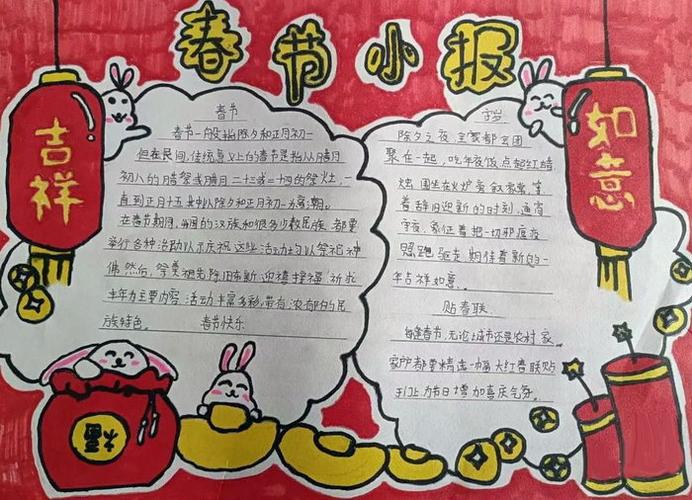 春节小报
吉祥
如意
春节
春节一般指除夕和正月初一
但在民间,传统意义上的春节是指从腊月
初八的腊祭或腊月二十三或二十四的祭灶,一
直到正月十五其中以除夕和正月初一为高潮。
在春节期间,我国的汉族和很多少数民族 都要
举行各种活动以示庆祝这些活动均以祭祀神
佛 祭奠祖先 除旧布新 迎禧接福 祈求
丰年为主要内容 活动丰富多彩,带有浓郁的民
族特色。 春节快乐
守岁
除夕之夜 全家都会团
聚在一起,吃年夜饭 点起红蜡
烛 围坐在火炉旁 等
着辞旧迎新的时刻 通宵
守夜 象征着把一切邪瘟疫
照跑 驱走 期待着新的一
年吉祥如意。
贴春联
每逢春节,无论城市还是农村 家
家户都要精选一幅大红春联贴
于门上 为节日增加喜庆气氛。
福